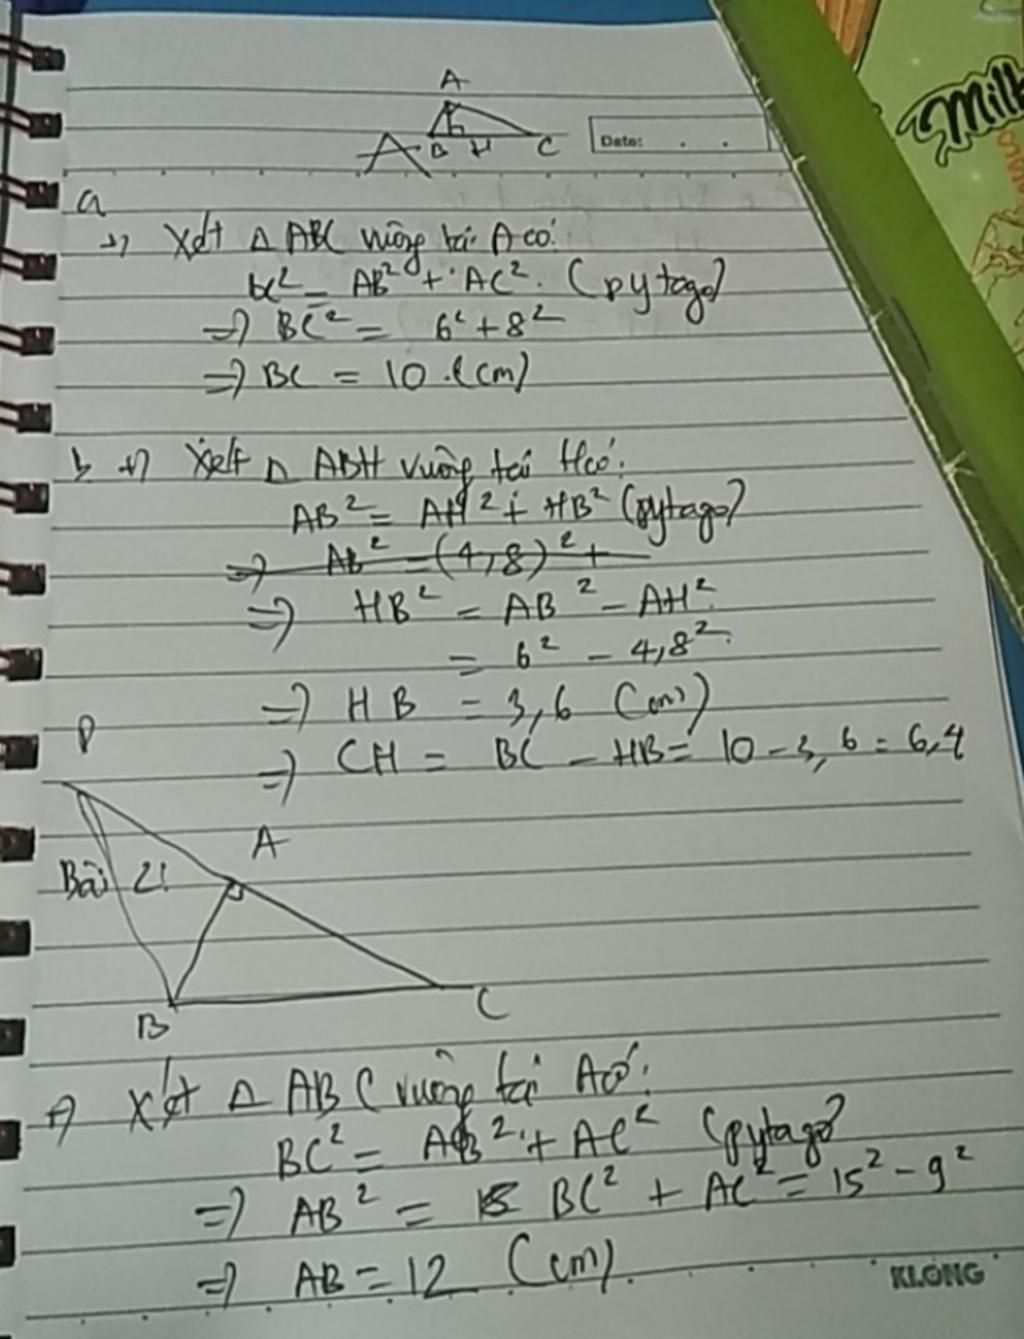 A
B H C
Date:
Milk
a
+) Xét Δ ABC vuông tại A có:
BC² = AB² + AC² (pytago)
=) BC² = 6² + 8²
=) BC = 10 (cm)
b +) Xét Δ ABH vuông tại H có:
AB² = AH² + HB² (pytago)
=) AB² = (4,8)² +
=) HB² = AB² - AH²
= 6² - 4,8²
=) HB = 3,6 (cm)
=) CH = BC - HB = 10 - 3,6 = 6,4
D
A
Bài 2:
B C
+) Xét Δ ABC vuông tại A có:
BC² = AB² + AC² (pytago)
=) AB² = BC² + AC² = 15² - 9²
=) AB = 12 (cm)
KLONG